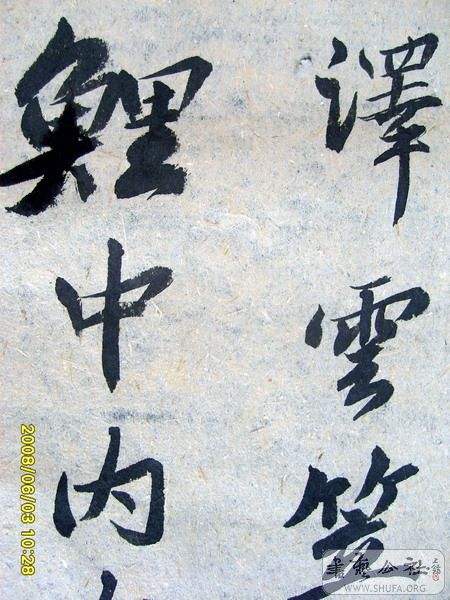 澤雲
鯉中内
2008/06/03 10:28
書藝公社
WWW.SHUFA.ORG